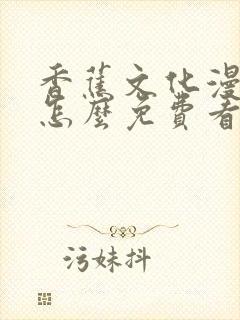 香蕉文化漫
怎麼免費看
污妹抖